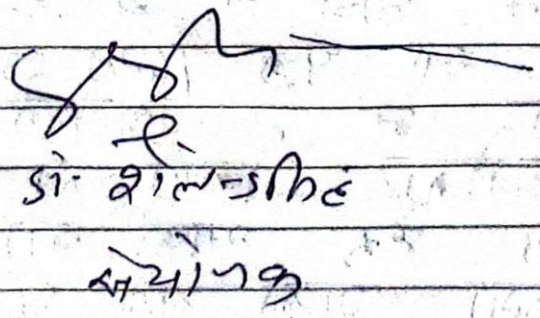 डॉ. शैलेन्द्र सिंह
संयोजक